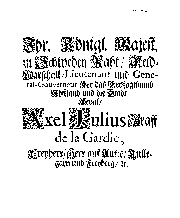 Ihr. Königl. Majest.
in Schweden Raht / Feld-
Marschall-Lieutenant und Gene-
ral-Gouverneur über das Hertzogthumb
Ehstland und die Stadt
Reval /
Axel Julius Graff
de la Gardie,
Freyherr / Herr auf
und Freyberg / ec.